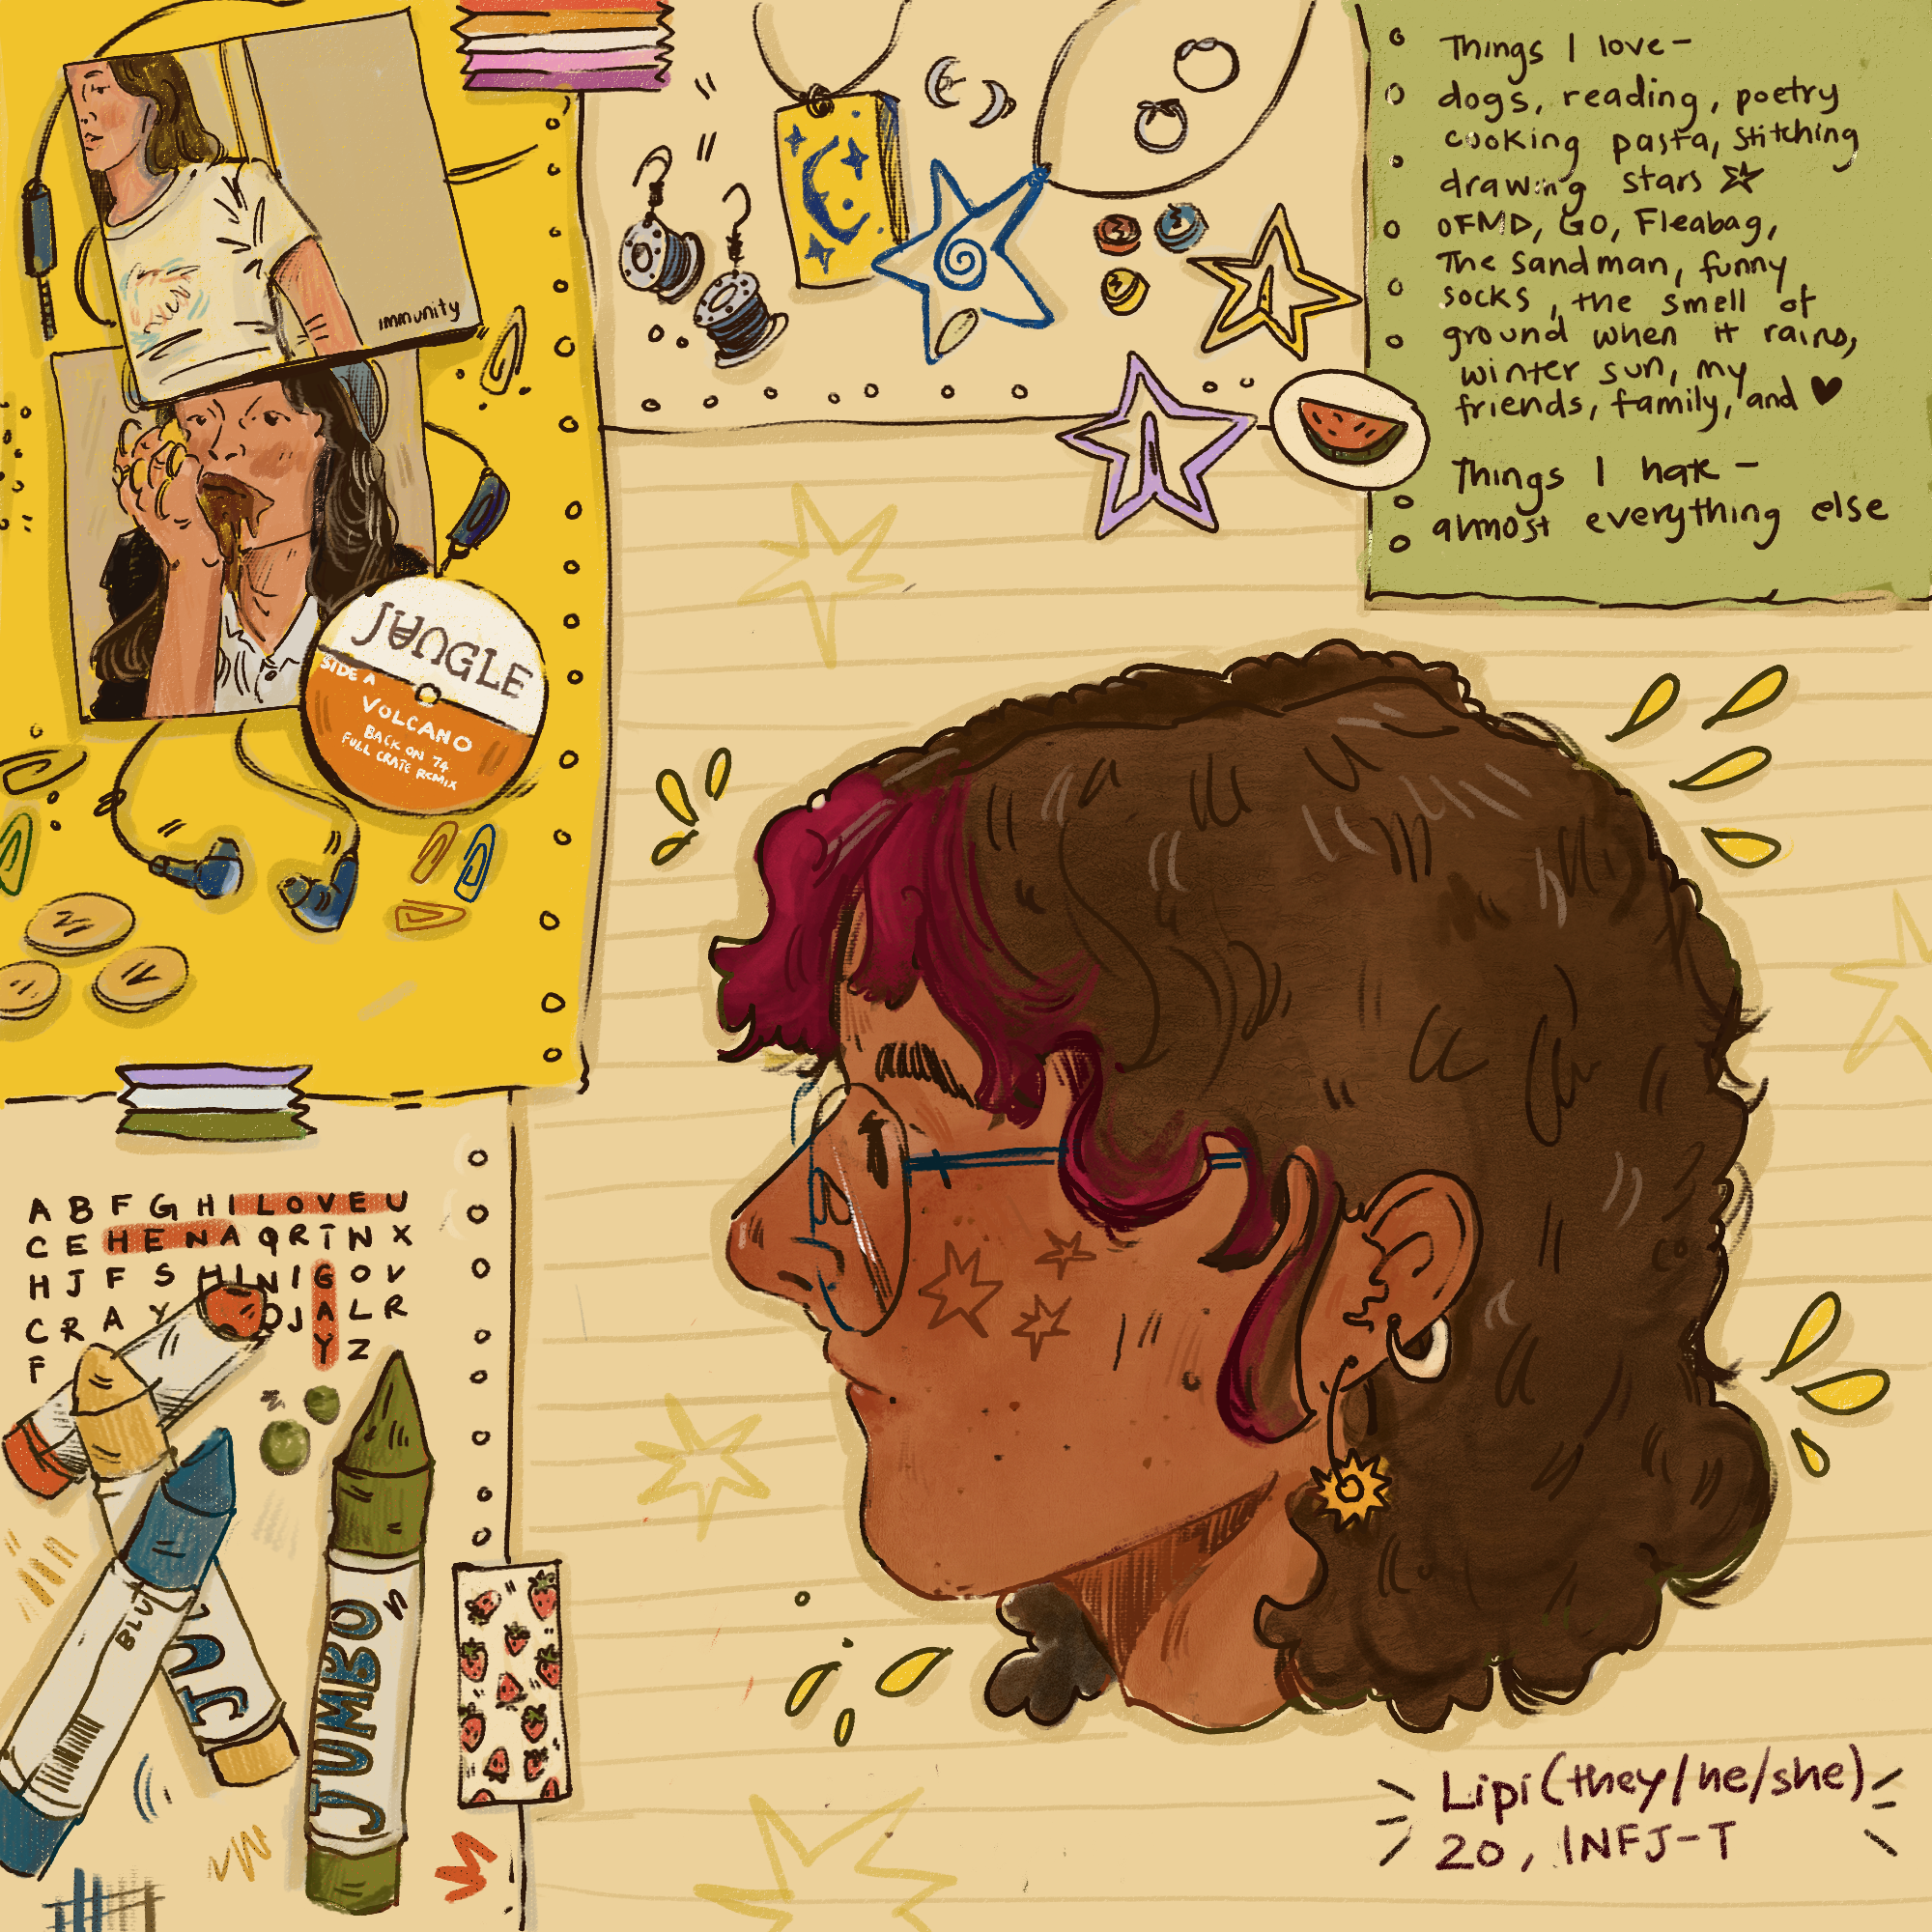 immunity
JUNGLE
SIDE A
VOLCANO
BACK ON 74
FULL CRATE REMIX
Things I love -
dogs, reading, poetry
cooking pasta, stitching
drawing stars
OFMD, GO, Fleabag,
The Sandman, funny
socks, the smell of
ground when it rains,
winter sun, my
friends, family, and
Things I hate -
almost everything else
A B F G H I L O V E U
C E H E N A Q R T N X
H J F S H I N I G O V
C R A Y O J A L R
F Y Z
BLU
JU
JUMBO
Lipi (they/he/she)
20, INFJ-T